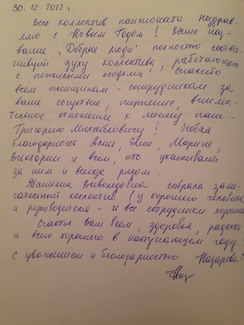 30.12.2012 г.
Весь коллектив пансионата поздрав-
ляю с Новым Годом! Ваше наз-
вание "Добрые люди" полностью соответ-
ствует духу коллектива, работающего
с пожилыми людьми! Спасибо
всем женщинам - сотрудникам за
ваше терпение, внима-
тельное отношение к моему папе -
Григорию Михайловичу! Особая
благодарность Анне, Марине,
Виктории и всем, кто ухаживает
за ним и всегда рядом.
собрала заме-
чательный коллектив! У хорошего человека
и руководителя - и все сотрудники хорошие
Счастья вам всем, здоровья, радости
и всего хорошего в наступающем году
с уважением и благодарностью Назарова